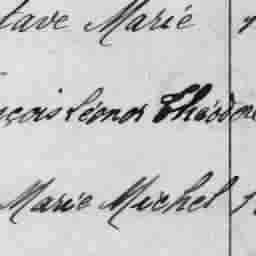 tave Marie
nçois Léonor Théodore
Marie Michel